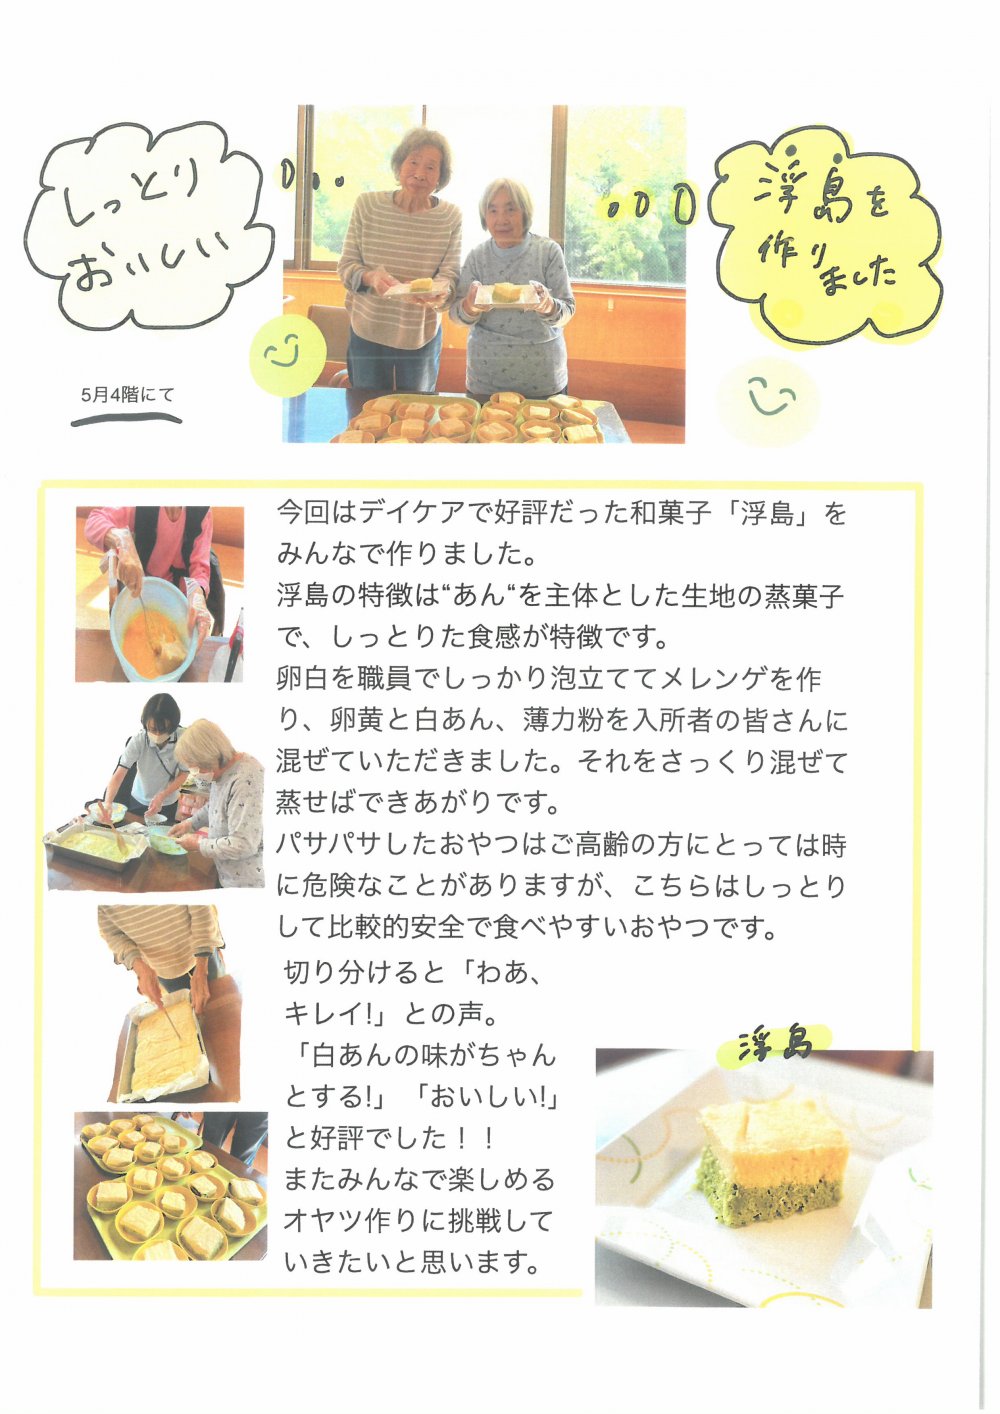 しっとり
おいしい
浮島を
作り
ました
5月4階にて
今回はデイケアで好評だった和菓子「浮島」を
みんなで作りました。
浮島の特徴は“あん“を主体とした生地の蒸菓子
で、しっとりた食感が特徴です。
卵白を職員でしっかり泡立ててメレンゲを作
り、卵黄と白あん、薄力粉を入所者の皆さんに
混ぜていただきました。それをさっくり混ぜて
蒸せばできあがりです。
パサパサしたおやつはご高齢の方にとっては時
に危険なことがありますが、こちらはしっとり
して比較的安全で食べやすいおやつです。
切り分けると「わあ、
キレイ!」との声。
「白あんの味がちゃん
とする!」「おいしい!」
と好評でした！！
またみんなで楽しめる
オヤツ作りに挑戦して
いきたいと思います。
浮島